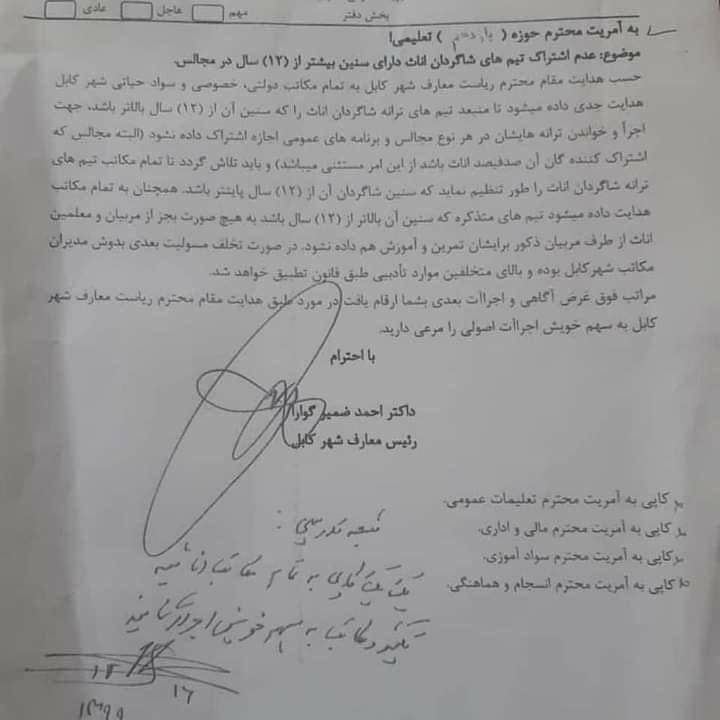 بخش دفتر
مهم عاجل عادی
به آمریت محترم حوزه ( یازدهم ) تعلیمی!
موضوع: عدم اشتراک تیم های شاگردان اناث دارای سنین بیشتر از (۱۲) سال در مجالس.
حسب هدایت مقام محترم ریاست معارف شهر کابل به تمام مکاتب دولتی، خصوصی و سواد حیاتی شهر کابل
هدایت جدی داده میشود تا منبعد تیم های ترانه شاگردان اناث را که سنین آن از (۱۲) سال بالاتر باشد، جهت
اجرأ و خواندن ترانه هایشان در هر نوع مجالس و برنامه های عمومی اجازه اشتراک داده نشود (البته مجالس که
اشتراک کننده گان آن صدفیصد اناث باشد از این امر مستثنی میباشد) و باید تلاش گردد تا تمام مکاتب تیم های
ترانه شاگردان اناث را طور تنظیم نماید که سنین شاگردان آن از (۱۲) سال پایینتر باشد. همچنان به تمام مکاتب
هدایت داده میشود تیم های متذکره که سنین آن بالاتر از (۱۲) سال باشد به هیچ صورت بجز از مربیان و معلمین
اناث از طرف مربیان ذکور برایشان تمرین و آموزش هم داده نشود. در صورت تخلف مسولیت بعدی بدوش مدیران
مکاتب شهرکابل بوده و بالای متخلفین موارد تأدیبی طبق قانون تطبیق خواهد شد.
مراتب فوق غرض آگاهی و اجراآت بعدی بشما ارقام یافت در مورد طبق هدایت مقام محترم ریاست معارف شهر
کابل به سهم خویش اجراآت اصولی را مرعی دارید.
با احترام
داکتر احمد ضمیر گوارا
رئیس معارف شهر کابل
کاپی به آمریت محترم تعلیمات عمومی.
کاپی به آمریت محترم مالی و اداری.
کاپی به آمریت محترم سواد آموزی.
کاپی به آمریت محترم انسجام و هماهنگی.
شعبه تدریسی :
یک یک کاپی به تمام مکاتب
به سهم خویش اجراآت نمایند
۱۲
۱۶
۱۳۹۹